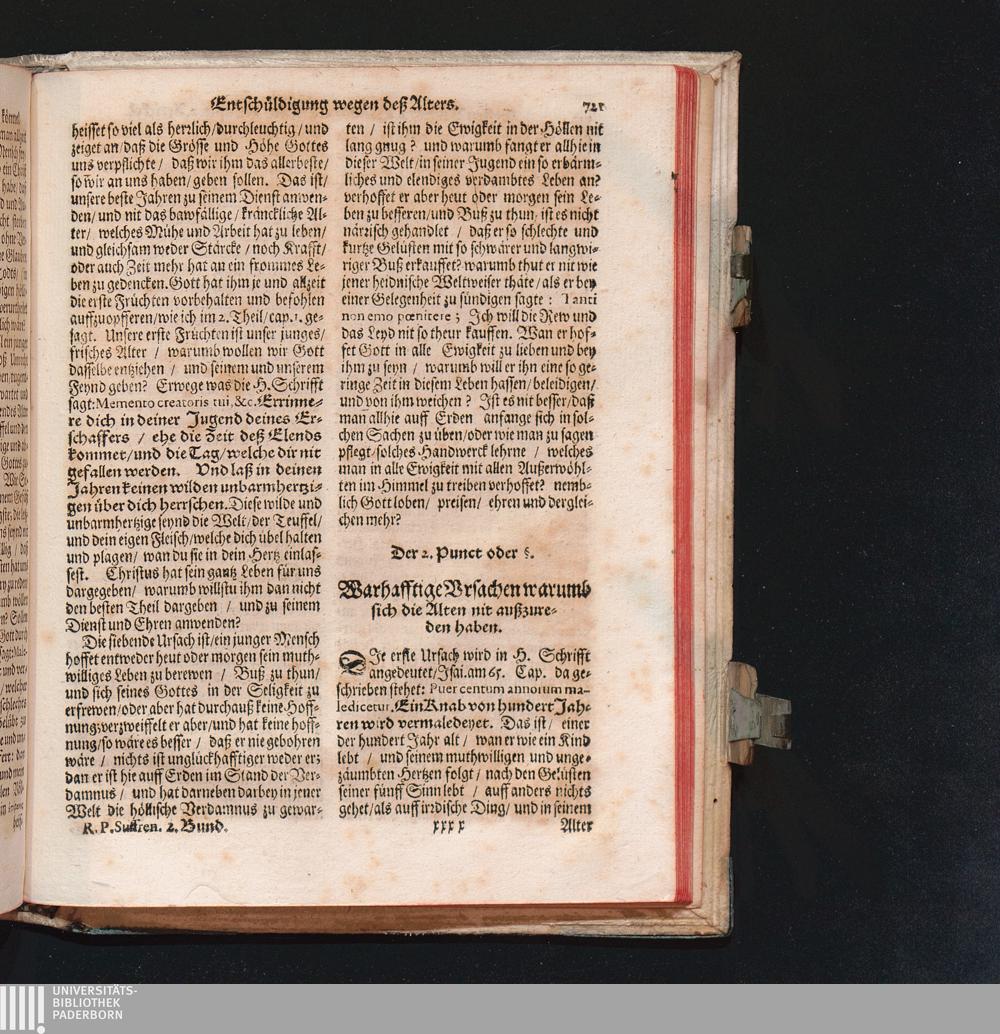 Entschüldigung wegen deß Alters. 721
heisset so viel als herzlich/durchleuchtig/und
zeiget an/daß die Grösse und Höhe Gottes
uns verpflichte/ daß wir ihm das allerbeste/
so wir an uns haben/geben sollen. Das ist/
unsere beste Jahren zu seinem Dienst anwen-
den/und nit das bawfällige/kränckliche Al-
ter/ welches Mühe und Arbeit hat zu leben/
und gleichsam weder Stärcke/noch Krafft/
oder auch Zeit mehr hat an ein frommes Le-
ben zu gedencken. Gott hat ihm je und allzeit
die erste Früchten vorbehalten und befohlen
auffzuopfferen/wie ich im 2. Theil/cap. 1. ge-
sagt. Unsere erste Früchten ist unser junges/
frisches Alter / warumb wollen wir Gott
dasselbe entziehen / und seinem und unserem
Feynd geben? Erwege was die H. Schrifft
sagt: Memento creatoris tui, &c. Errinne-
re dich in deiner Jugend deines Er-
schaffers / ehe die Zeit deß Elends
kommet/und die Tag/welche dir nit
gefallen werden. Und laß in deinen
Jahren keinen wilden unbarmhertzi-
gen über dich herrschen. Diese wilde und
unbarmhertzige seynd die Welt/der Teuffel/
und dein eigen Fleisch/welche dich übel halten
und plagen/ wan du sie in dein Hertz einlas-
sest. Christus hat sein gantz Leben für uns
dargegeben/ warumb willstu ihm dan nicht
den besten Theil dargeben / und zu seinem
Dienst und Ehren anwenden?
Die siebende Ursach ist/ein junger Mensch
hoffet entweder heut oder morgen sein muth-
williges Leben zu berewen / Buß zu thun/
und sich seines Gottes in der Seligkeit zu
erfrewen/oder aber hat durchauß keine Hoff-
nung: verzweiffelt er aber/und hat keine hoff-
nung/so wäre es besser / daß er nie gebohren
wäre / nichts ist unglückhafftiger weder er:
dan er ist hie auff Erden im Stand der Ver-
damnus / und hat darneben darbey in jener
Welt die höllische Verdamnus zu gewar-
R. P. Suffren. 2. Bund.
ten / ist ihm die Ewigkeit in der Höllen nit
lang gnug? und warumb fangt er allhie in
dieser Welt/in seiner Jugend ein so erbärm-
liches und elendiges verdambtes Leben an?
verhoffet er aber heut oder morgen sein Le-
ben zu besseren/und Buß zu thun/ ist es nicht
närrisch gehandlet / daß er so schlechte und
kurtze Gelüsten mit so schwärer und langwi-
riger Buß erkauffet? warumb thut er nit wie
jener heidnische Weltweiser thäte/als er bey
einer Gelegenheit zu sündigen sagte: Tanti
non emo pœnitere; Ich will die Rew und
das Leyd nit so theur kauffen. Wan er hof-
fet Gott in alle Ewigkeit zu lieben und bey
ihm zu seyn / warumb will er ihn eine so ge-
ringe Zeit in diesem Leben hassen/beleidigen/
und von ihm weichen? Ist es nit besser/daß
man allhie auff Erden anfange sich in sol-
chen Sachen zu üben/oder wie man zu sagen
pflegt/solches Handwerck lehrne / welches
man in alle Ewigkeit mit allen Außerwöhl-
ten im Himmel zu treiben verhoffet? nemb-
lich Gott loben/ preisen/ ehren und derglei-
chen mehr?
Der 2. Punct oder §.
Warhafftige Ursachen warumb
sich die Alten nit außzure-
den haben.
DIe erste Ursach wird in H. Schrifft
angedeutet/Isai. am 65. Cap. da ge-
schrieben stehet: Puer centum annorum ma-
ledicetur. Ein Knab von hundert Jah-
ren wird vermaledeyet. Das ist/ einer
der hundert Jahr alt/ wan er wie ein Kind
lebt / und seinem muthwilligen und unge-
zäumbten Hertzen folgt/ nach den Gelüsten
seiner fünff Sinn lebt / auff anders nichts
gehet/als auff irzdische Ding/ und in seinem
xxxx Alter
UNIVERSITÄTS-
BIBLIOTHEK
PADERBORN